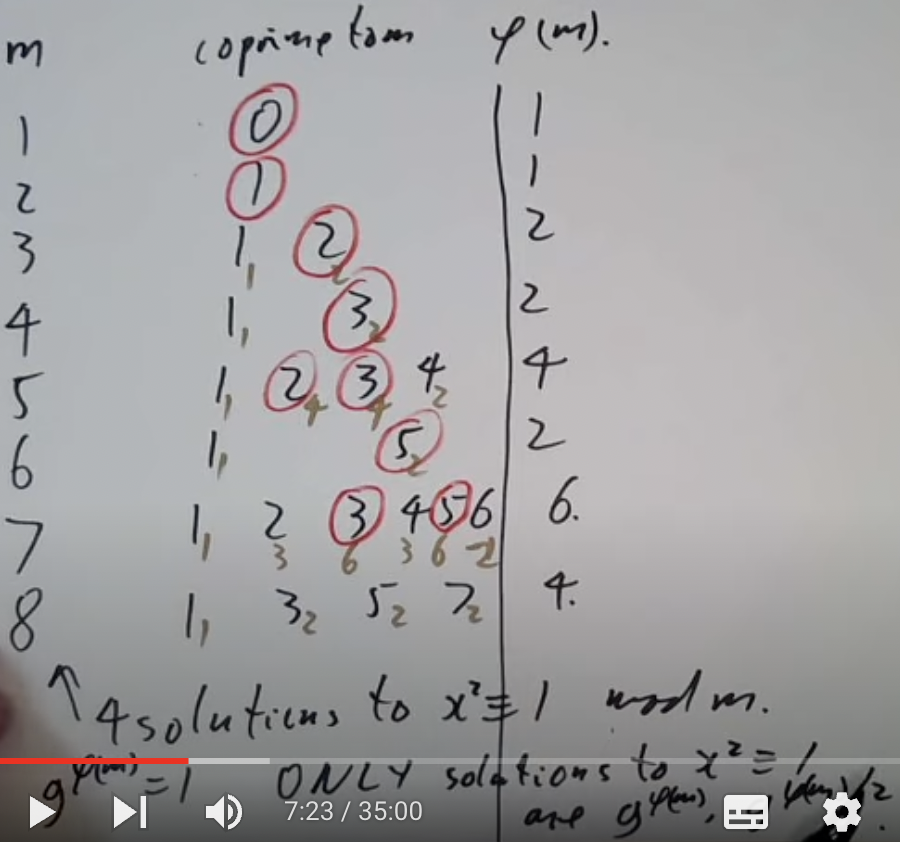 m coprime to m φ(m).
1 0 1
2 1 1
3 1,1 2 2 2
4 1,1 3 2 2
5 1,1 2 4 3 4 4 2 4
6 1,1 5 2 2
7 1,1 2 3 3 6 4 3 5 6 6 2 6.
8 1,1 3 2 5 2 7 2 4.
↑ 4 solutions to x² ≡ 1 mod m.
g^φ(m) = 1 ONLY solutions to x² ≡ 1
are g^φ(m), g^φ(m)/2.
7:23 / 35:00